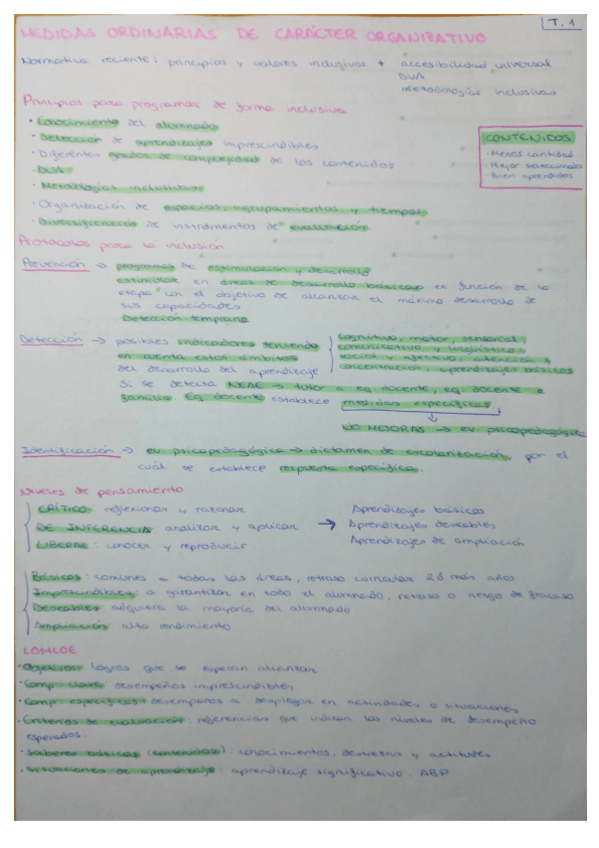 T. 1
MEDIDAS ORDINARIAS DE CARÁCTER ORGANIZATIVO
Normativa reciente: principios y valores inclusivos + accesibilidad universal
DUA
metodologías inclusivas
Principios para programar de forma inclusiva
· Conocimiento del alumnado
· Selección de aprendizajes imprescindibles
· Diferentes grados de complejidad de los contenidos
· DUA
· Metodologías inclusivas
· Organización de espacios, agrupamientos y tiempos
· Diversificación de instrumentos de evaluación
CONTENIDOS
· Menos cantidad
· Mejor seleccionados
· Bien aprendidos
Protocolos para la inclusión
Prevención → programas de estimulación y desarrollo
estimular en áreas de desarrollo básicas en función de la
etapa con el objetivo de alcanzar el máximo desarrollo de
sus capacidades
Detección temprana
Detección → posibles indicadores teniendo
en cuenta estos ámbitos
del desarrollo del aprendizaje
cognitivo, motor, sensorial,
comunicativo y lingüístico,
social y afectivo, atención y
concentración, aprendizajes básicos
Si se detecta NEAE → tutor a eq. docente, eq. docente a
familia. Eq. docente establece medidas específicas.
NO MEJORAS → ev psicopedagógica
Identificación → ev psicopedagógica → dictamen de escolarización, por el
cuál se establece respuesta específica.
Niveles de pensamiento
CRÍTICO: reflexionar y razonar
DE INFERENCIA: analizar y aplicar →
LIBERAL: conocer y reproducir
Aprendizajes básicos
Aprendizajes deseables
Aprendizajes de ampliación
Básicos: comunes a todas las áreas, retraso curricular 2 ó más años
Imprescindibles: a garantizar en todo el alumnado, retraso o riesgo de fracaso
Deseables: adquiera la mayoría del alumnado
Ampliación: alto rendimiento
LOMLOE
· Objetivos: logros que se esperan alcanzar
· Comp. clave: desempeños imprescindibles
· Comp. específicas: desempeños a desplegar en actividades o situaciones
· Criterios de evaluación: referencias que indican los niveles de desempeño
esperados
· Saberes básicos (contenidos): conocimientos, destrezas y actitudes
· Situaciones de aprendizaje: aprendizaje significativo. ABP